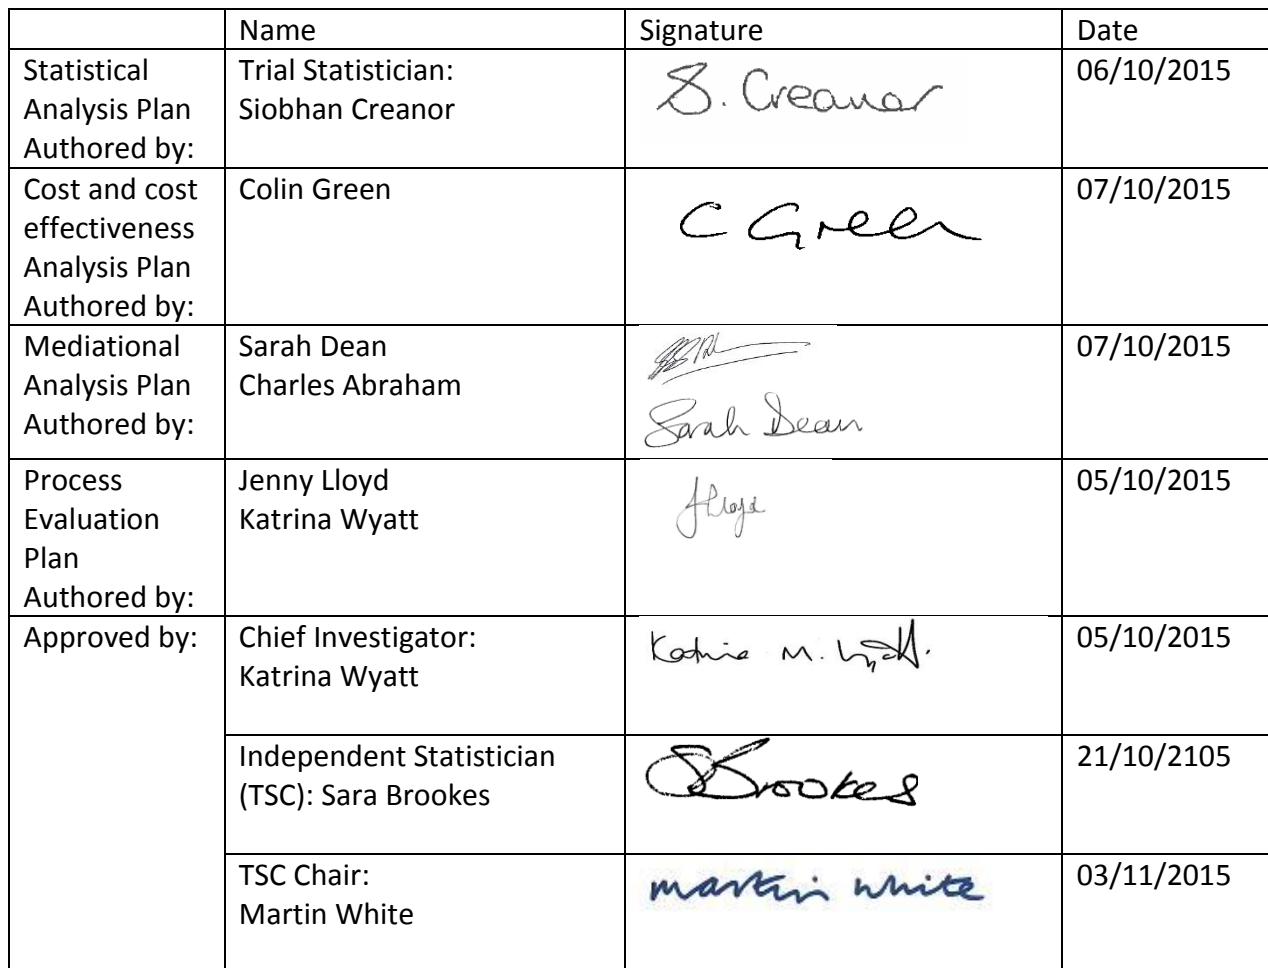 Name Signature Date
Statistical Analysis Plan Authored by: Trial Statistician: Siobhan Creanor S. Creanor 06/10/2015
Cost and cost effectiveness Analysis Plan Authored by: Colin Green C Green 07/10/2015
Mediational Analysis Plan Authored by: Sarah Dean Charles Abraham Sarah Dean 07/10/2015
Process Evaluation Plan Authored by: Jenny Lloyd Katrina Wyatt JLloyd 05/10/2015
Approved by: Chief Investigator: Katrina Wyatt Katrina M. Wyatt. 05/10/2015
Independent Statistician (TSC): Sara Brookes SBrookes 21/10/2105
TSC Chair: Martin White martin white 03/11/2015